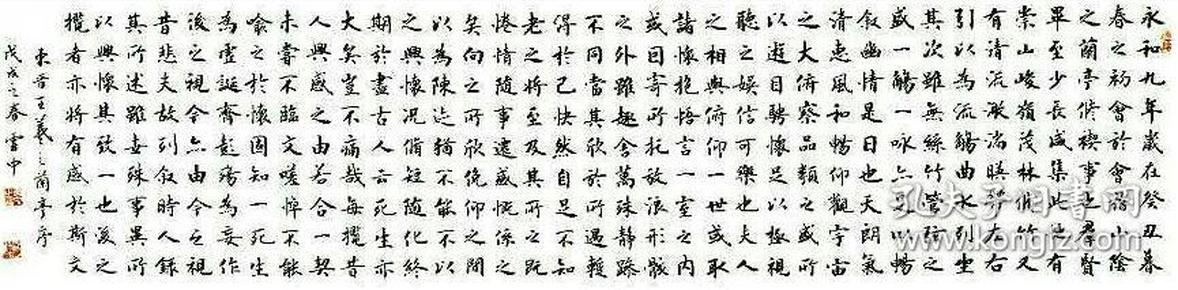 永和九年歲在癸丑暮
春之初會於會稽山陰
之蘭亭修禊事也羣賢
畢至少長咸集此地有
崇山峻嶺茂林修竹又
有清流激湍映帶左右
引以為流觴曲水列坐
其次雖無絲竹管弦之
盛一觴一詠亦足以暢
敘幽情是日也天朗氣
清惠風和暢仰觀宇宙
之大俯察品類之盛所
以遊目騁懷足以極視
聽之娛信可樂也夫人
之相與俯仰一世或取
諸懷抱悟言一室之內
或因寄所托放浪形骸
之外雖趣舍萬殊靜躁
不同當其欣於所遇暫
得於己快然自足不知
老之將至及其所之既
惓情隨事遷感慨係之
矣向之所欣俛仰之間
以為陳迹猶不能不以
之興懷況脩短隨化終
期於盡古人云死生亦
大矣豈不痛哉每攬昔
人興感之由若合一契
未嘗不臨文嗟悼不能
喻之於懷固知一死生
為虛誕齊彭殤為妄作
後之視今亦由今之視
昔悲夫故列敘時人錄
其所述雖世殊事異所
以興懷其致一也後之
攬者亦將有感於斯文
東晉王羲之蘭亭序
戊戌之春雲中
孔夫子旧书网
www.kongfz.com